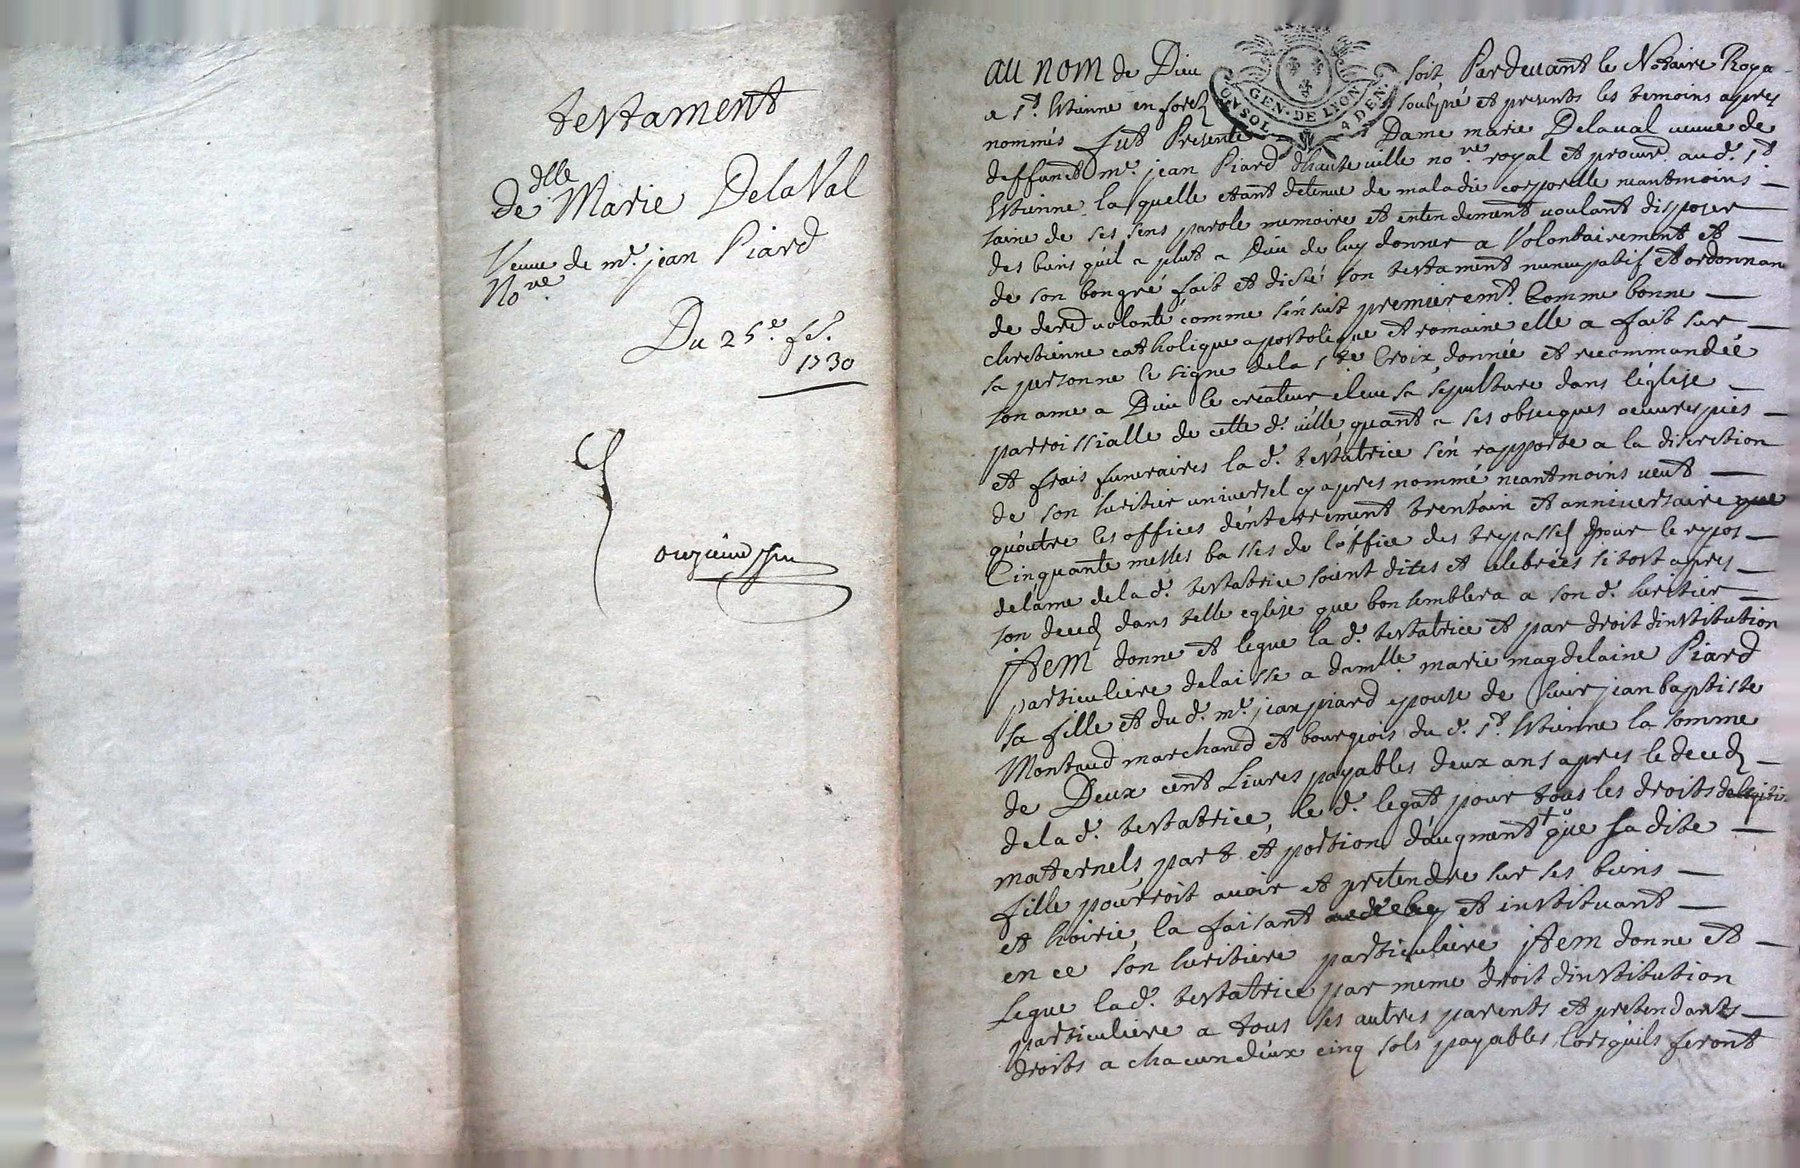 testament
de dlle Marie DelaVal
Veuve de mr. jean Piard
Nore
Du 25e. fs.
1730
au nom de Dieu soit Pardevant le Notaire Roya
a St. Etienne en forez soubsné et presents les temoins apres
nommés fut Presente Dame marie Delaval veuve de
deffunct mr. jean Piard dhauteville nore. royal et procurr. au d. St.
Etienne laquelle etant detenue de maladie corporelle neantmoins
saine de ses sens parole memoire et entendement voulant disposer
des biens quil a plut a Dieu de luy donner a Volontairement et
de son bongré fait et dicté son testament nuncupatif et ordonnan
de dere volonté comme sénsuit premieremt. Comme bonne
chretienne catholique apostolique et romaine elle a fait sur
sa personne le signe dela ste Croix, donnée et recommandée
son ame a Dieu le createur eleue sa sepulture dans léglise
parroissialle de cette d. ville quant a ses obseques oeuvres pies
et frais funeraires la d. testatrice sén rapporte a la discretion
de son heritier universel cy apres nommé neantmoins veut
quóutre les offices dénterrement trentain et anniversaire que
Cinquante messes basses de lóffice des trepassés pour le repos
delame dela d. testatrice soient dites et celebrées si tost apres
son deced dans telle eglise que bon semblera a son d. heritier
jtem donne et legue la d. testatrice et par droit dinstitution
particuliere delaisse a damlle. marie magdelaine Piard
sa fille et du d. mr. jean piard epouse de sieur jean baptiste
Montaud marchand et bourgeois du d. St. Etienne la somme
de Deux cent Livres payables deux ans apres le deced
dela d. testatrice, le d. legat pour tous les droits de legiti
maternels part et portion dáugment que sa dite
fille pourroit avoir et pretendre sur ses biens
et hoirie, la faisant et instituant
en ce son heritiere particuliere jtem donne et
Legue la d. testatrice par meme droit dinstitution
particuliere a tous ses autres parents et pretendants
droits a chacun déux cinq sols payables lorsquils feront
GEN. DE LYON
UN SOL 4 DEN.